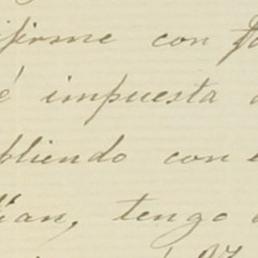 firme con
é impuesta
bliendo con
tian, tengo